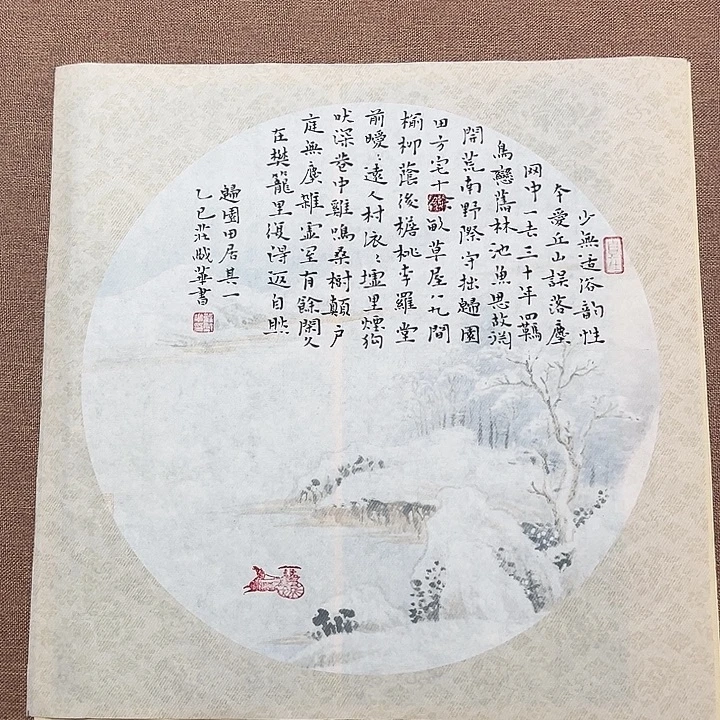 少無适俗韵性
本爱丘山誤落塵
网中一去三十年羈
鳥戀舊林池魚思故渊
開荒南野際守拙歸園
田方宅十餘畝草屋八九間
榆柳蔭後檐桃李羅堂
前曖〻遠人村依〻墟里煙狗
吠深巷中雞鳴桑樹顛户
庭無塵雜虛室有餘閑久
在樊籠里復得返自然
歸園田居其一
乙巳莊華書